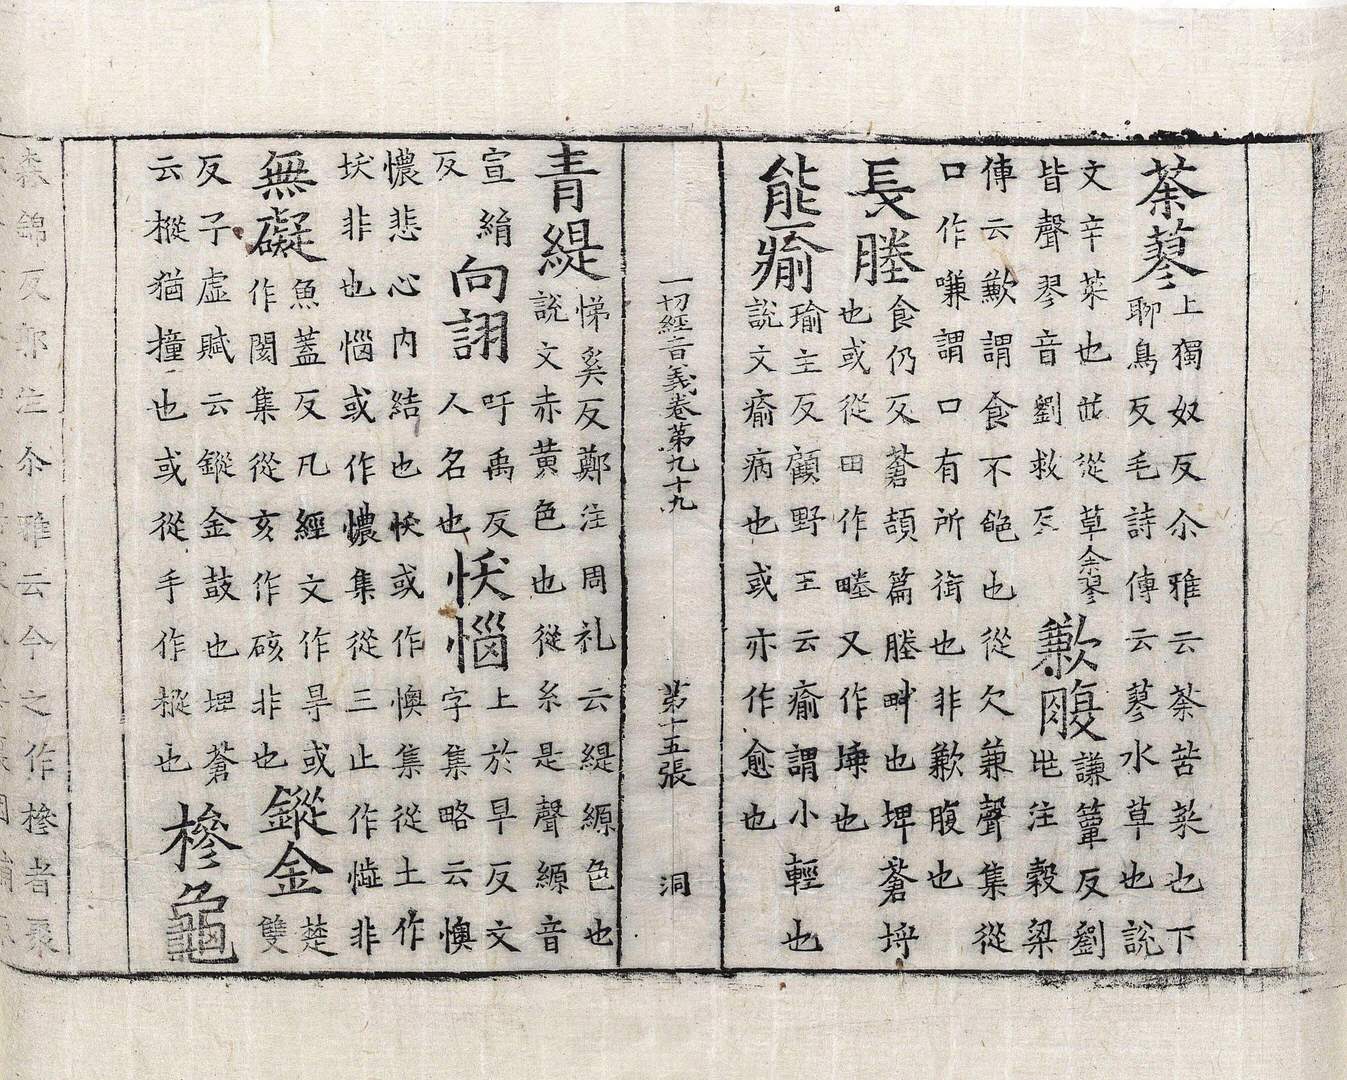 荼蓼
上獨奴反尒雅云荼苦菜也下
聊鳥反毛詩傳云蓼水草也說
文辛菜也並從草余翏
皆聲翏音劉救反
歉腹
謙簟反劉
兆注穀梁
傳云歉謂食不飽也從欠兼聲集從
口作嗛謂口有所銜也非歉腹也
長塍
食仍反蒼頡篇塍畔也埤蒼埒
也或從田作畻又作堘也
能瘉
瑜主反顧野王云瘉謂小輕也
說文瘉病也或亦作愈也
一切經音義卷第九十九 第十五張 洞
青緹
悌奚反鄭注周礼云緹縓色也
說文赤黃色也從糸是聲縓音
宣絹
反
向詡
吁禹反
人名也
㤇惱
上於早反文
字集略云懊
憹悲心內結也㤇或作懊集從土作
非也惱或作憹集從三止作非
無礙
魚蓋反凡經文作㝵或
作閡集從亥作硋非也
鏦金
楚
雙
反子虛賦云鏦金鼓也埤蒼
云樅猶撞也或從手作摐也
槮龜
森錦反郭注尒雅云今之作槮者聚